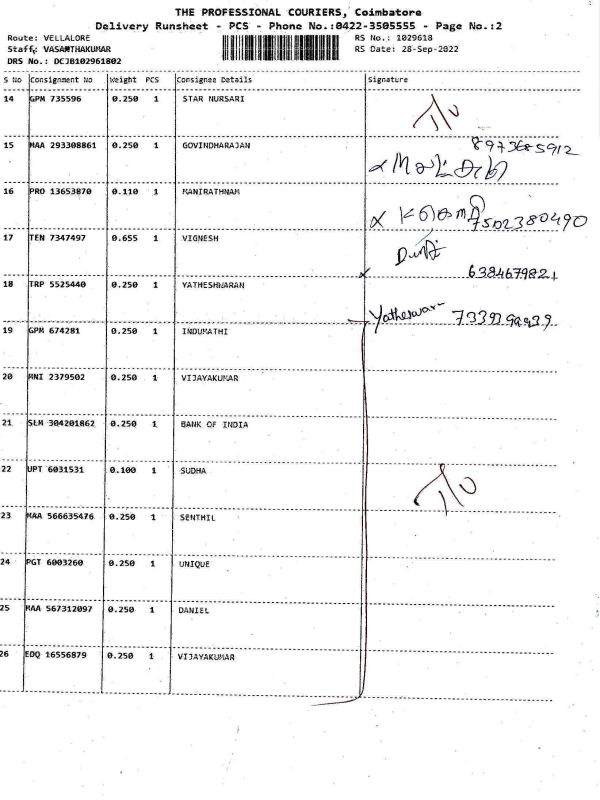 THE PROFESSIONAL COURIERS, Coimbatore
Delivery Runsheet - PCS - Phone No.:0422-3505555 - Page No.:2
Route: VELLALORE RS No.: 1029618
Staff: VASANTHAKUMAR RS Date: 28-Sep-2022
DRS No.: DCJB102961802
S No Consignment No Weight PCS Consignee Details Signature
14 GPM 735596 0.250 1 STAR NURSARI
15 MAA 293308861 0.250 1 GOVINDHARAJAN 8973685912
16 PRO 13653870 0.110 1 MANIRATHNAM 7502380490
17 TEN 7347497 0.655 1 VIGNESH 6384679821
18 TRP 5525440 0.250 1 YATHESHWARAN
19 GPM 674281 0.250 1 INDUMATHI
20 MNI 2379502 0.250 1 VIJAYAKUMAR
21 SLM 304201862 0.250 1 BANK OF INDIA
22 UPT 6031531 0.100 1 SUDHA
23 MAA 566635476 0.250 1 SENTHIL
24 PGT 6003260 0.250 1 UNIQUE
25 MAA 567312097 0.250 1 DANIEL
26 EDQ 16556879 0.250 1 VIJAYAKUMAR